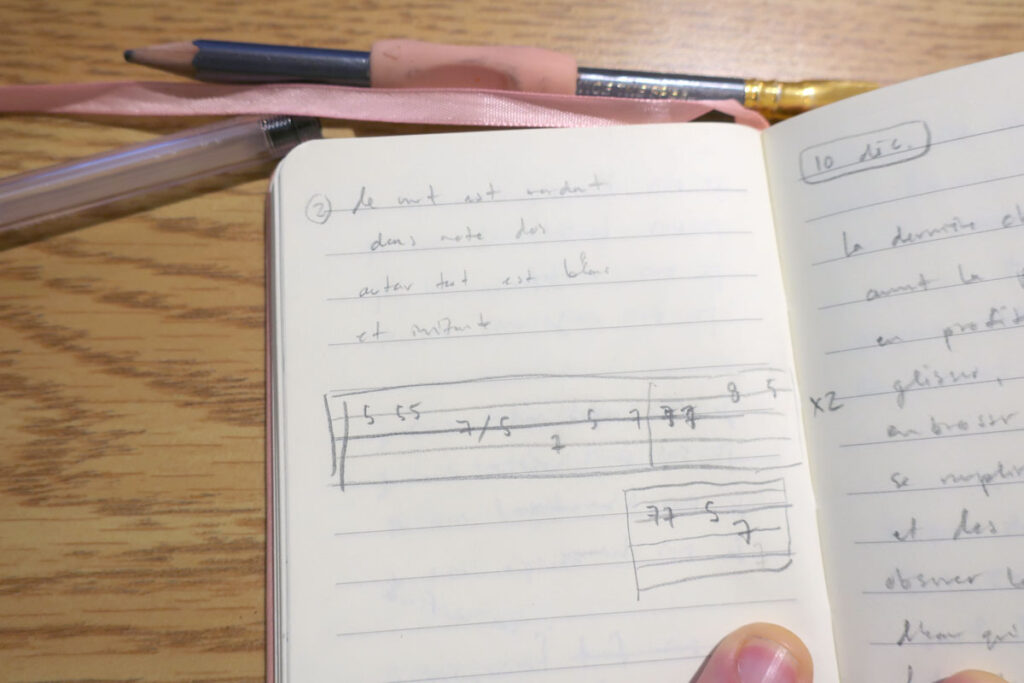 ② le vent est mordant
dans notre dos
autour tout est blanc
et invitant
5 55 7/5 7 5 7 77 8 5 x2
77 5 7
10 déc.
la dernière
avant la
en profit
glisser,
embrasser
se remplir
et des
observer
l'eau qui